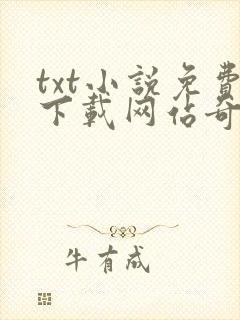 txt小説免費
下載网佔奇
牛有成